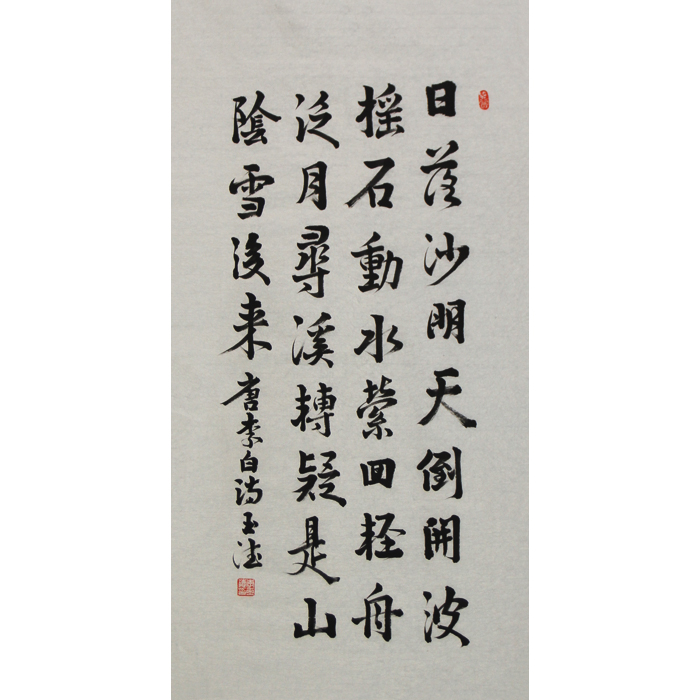 日落沙明天倒開波
搖石動水縈回軽舟
泛月尋溪轉疑是山
陰雪後来唐李白詩玉法